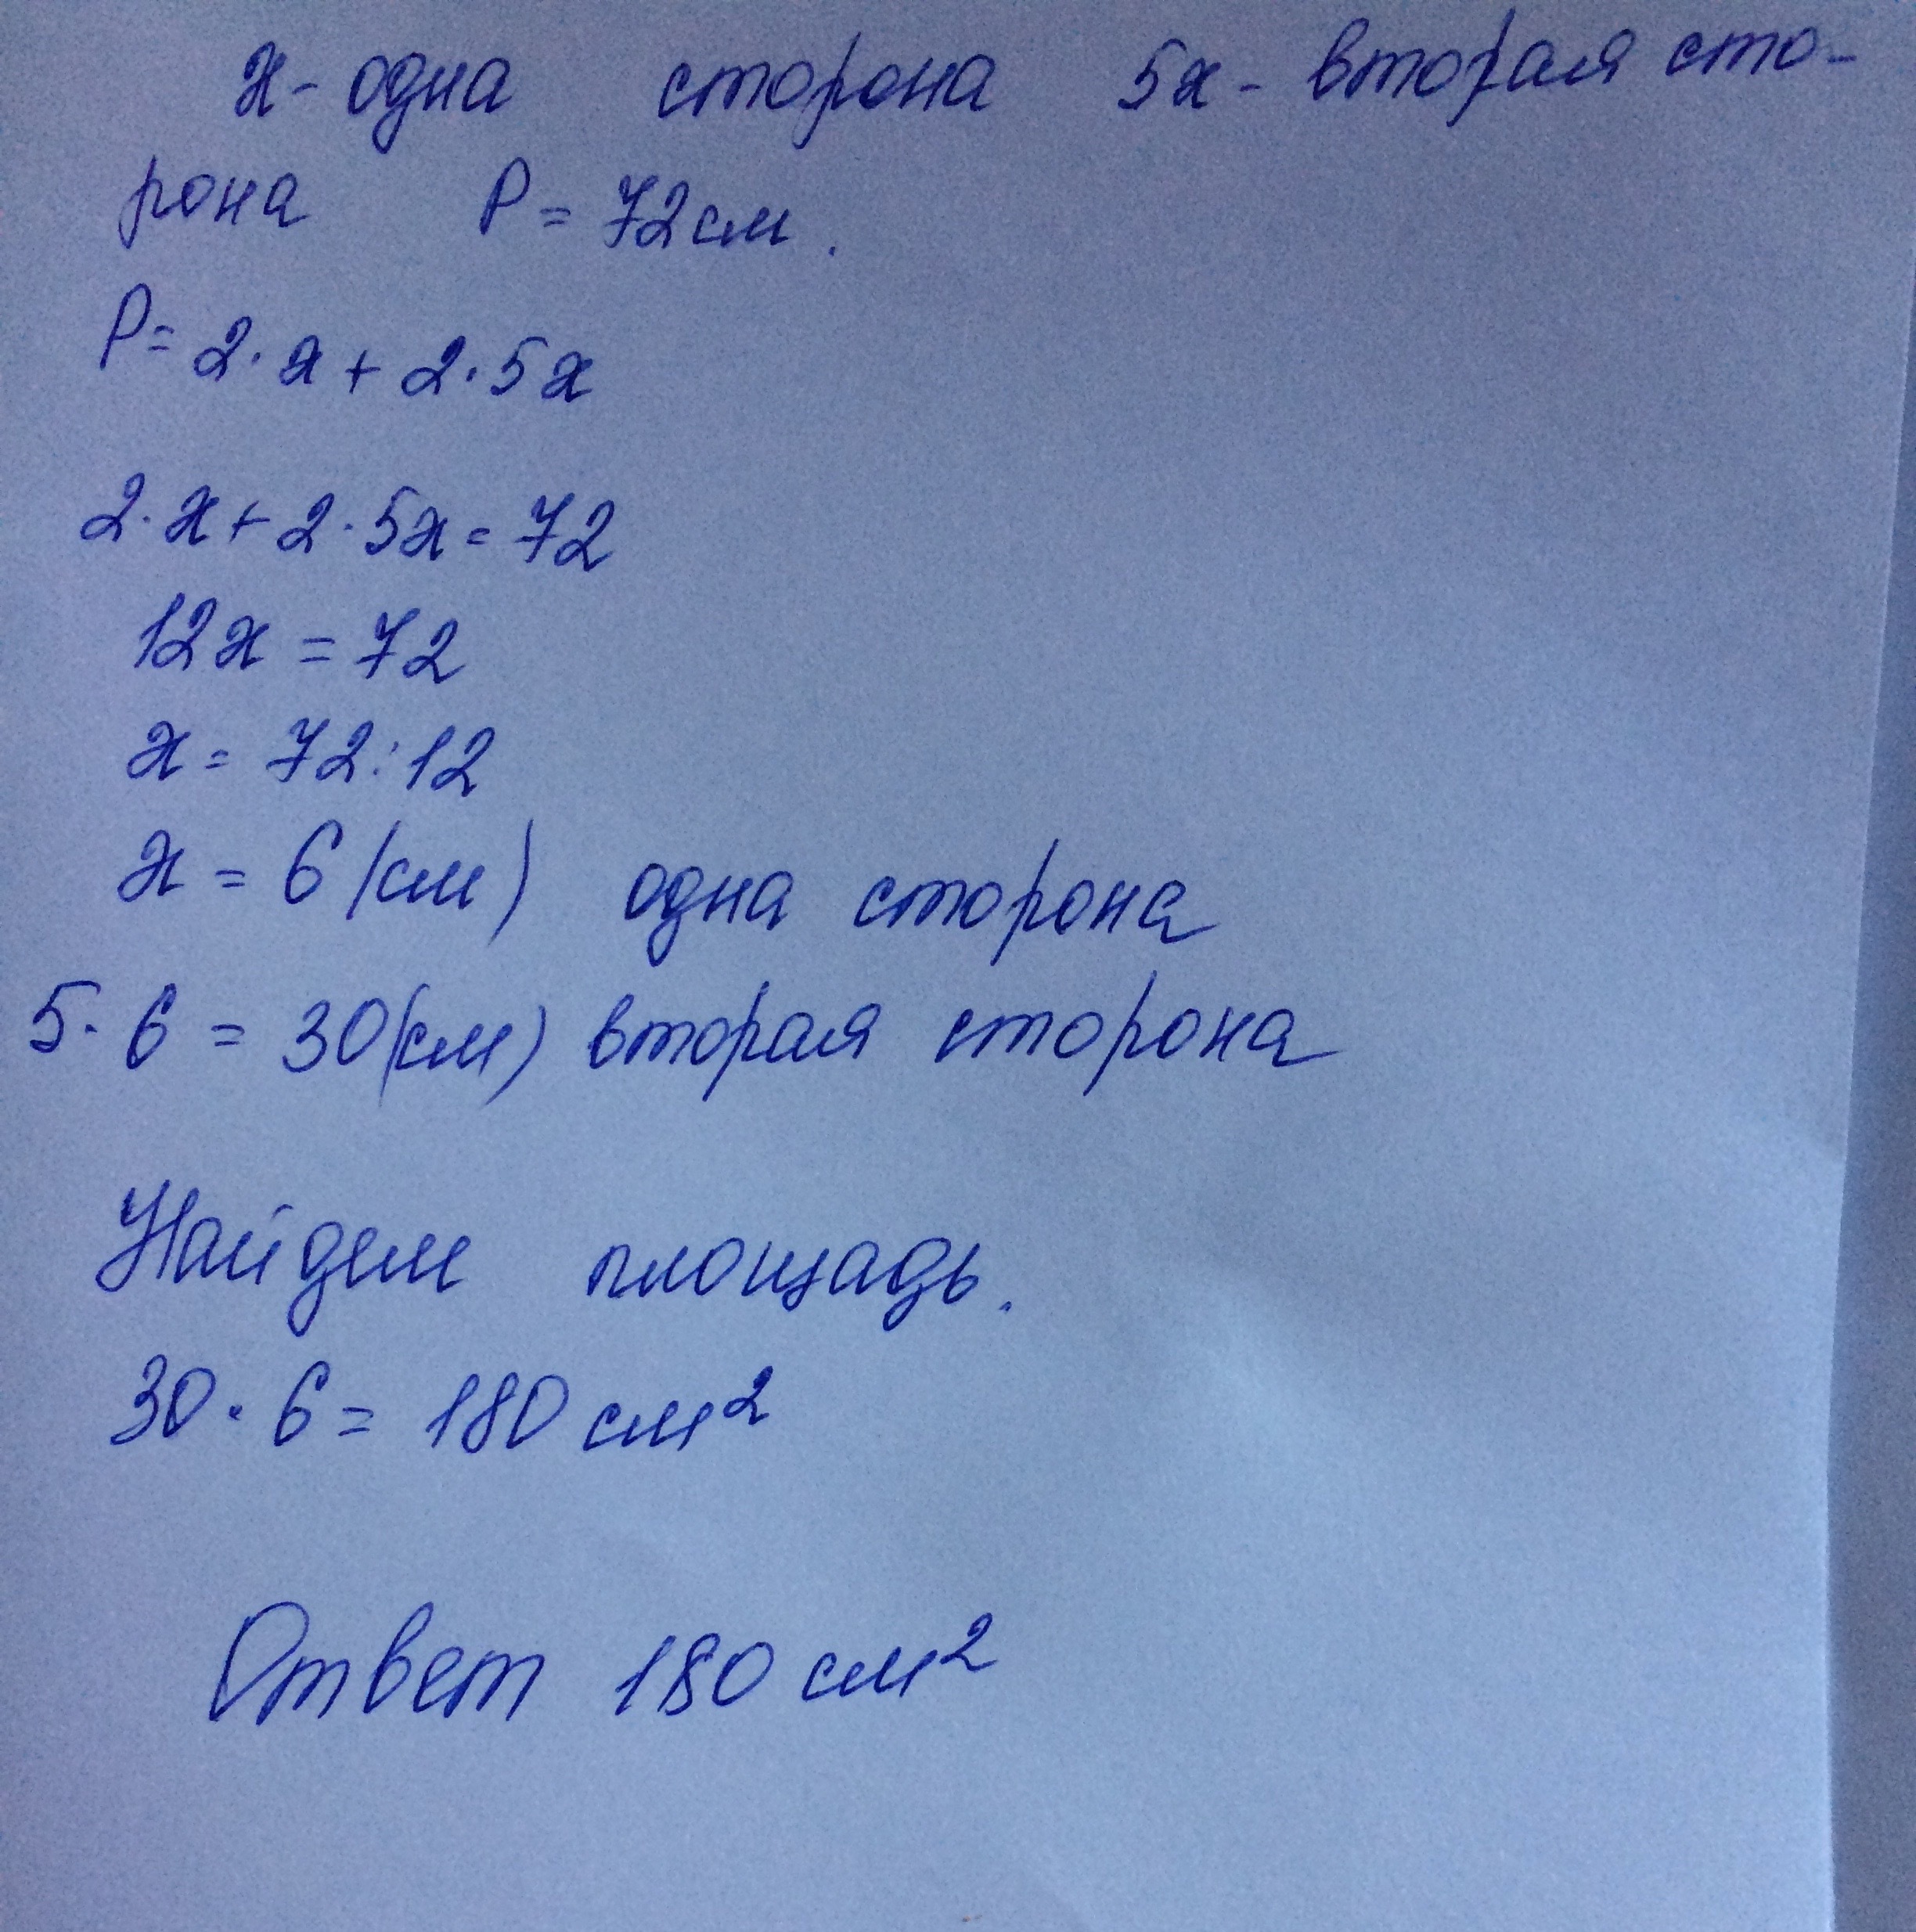 x - одна сторона 5x - вторая сто-
рона P = 72 см.
P = 2 · x + 2 · 5x
2 · x + 2 · 5x = 72
12x = 72
x = 72 : 12
x = 6 (см) одна сторона
5 · 6 = 30 (см) вторая сторона
Найдем площадь.
30 · 6 = 180 см²
Ответ 180 см²